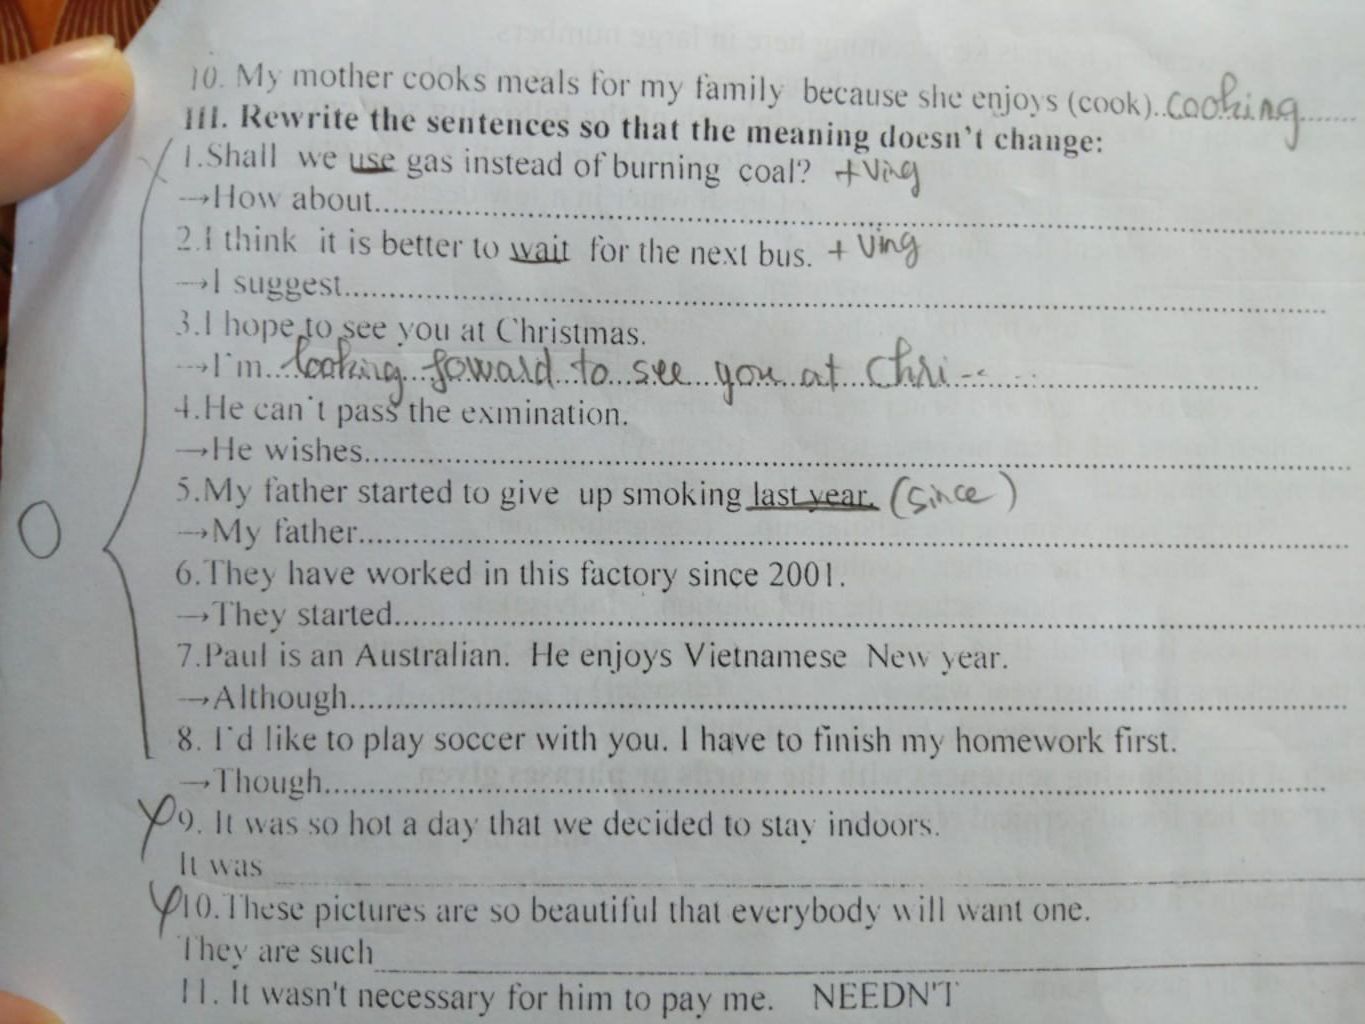 10. My mother cooks meals for my family because she enjoys (cook)..cooking......
III. Rewrite the sentences so that the meaning doesn't change:
1.Shall we use gas instead of burning coal? +Ving
→How about................................................
2.I think it is better to wait for the next bus. + Ving
→I suggest................................................
3.I hope to see you at Christmas.
→I'm...looking..foward..to...see...you..at...Chri--..................
4.He can't pass the exmination.
→He wishes................................................
5.My father started to give up smoking last year. (since)
→My father................................................
6.They have worked in this factory since 2001.
→They started................................................
7.Paul is an Australian. He enjoys Vietnamese New year.
→Although................................................
8. I'd like to play soccer with you. I have to finish my homework first.
→Though................................................
9. It was so hot a day that we decided to stay indoors.
It was ________________
10.These pictures are so beautiful that everybody will want one.
They are such________________
11. It wasn't necessary for him to pay me. NEEDN'T